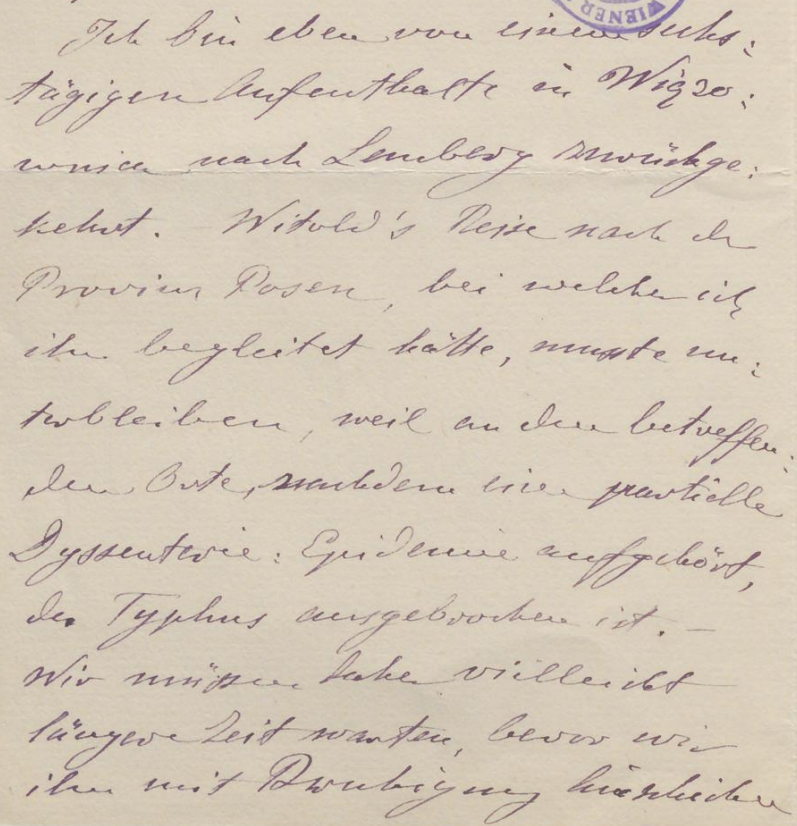 WIENER
Ich bin eben von einem sechs:
tägigen Aufenthalte in Wiązo:
wnica nach Lemberg zurückge:
kehrt. – Witold's Reise nach der
Provinz Posen, bei welcher ich
ihn begleitet hätte, musste un:
terbleiben, weil an dem betreffen:
den Orte, nachdem eine partielle
Dyssenterie: Epidemie aufgehört,
der Typhus ausgebrochen ist. –
Wir müssen daher vielleicht
längere Zeit warten, bevor wir
ihn mit Beruhigung hinschicken